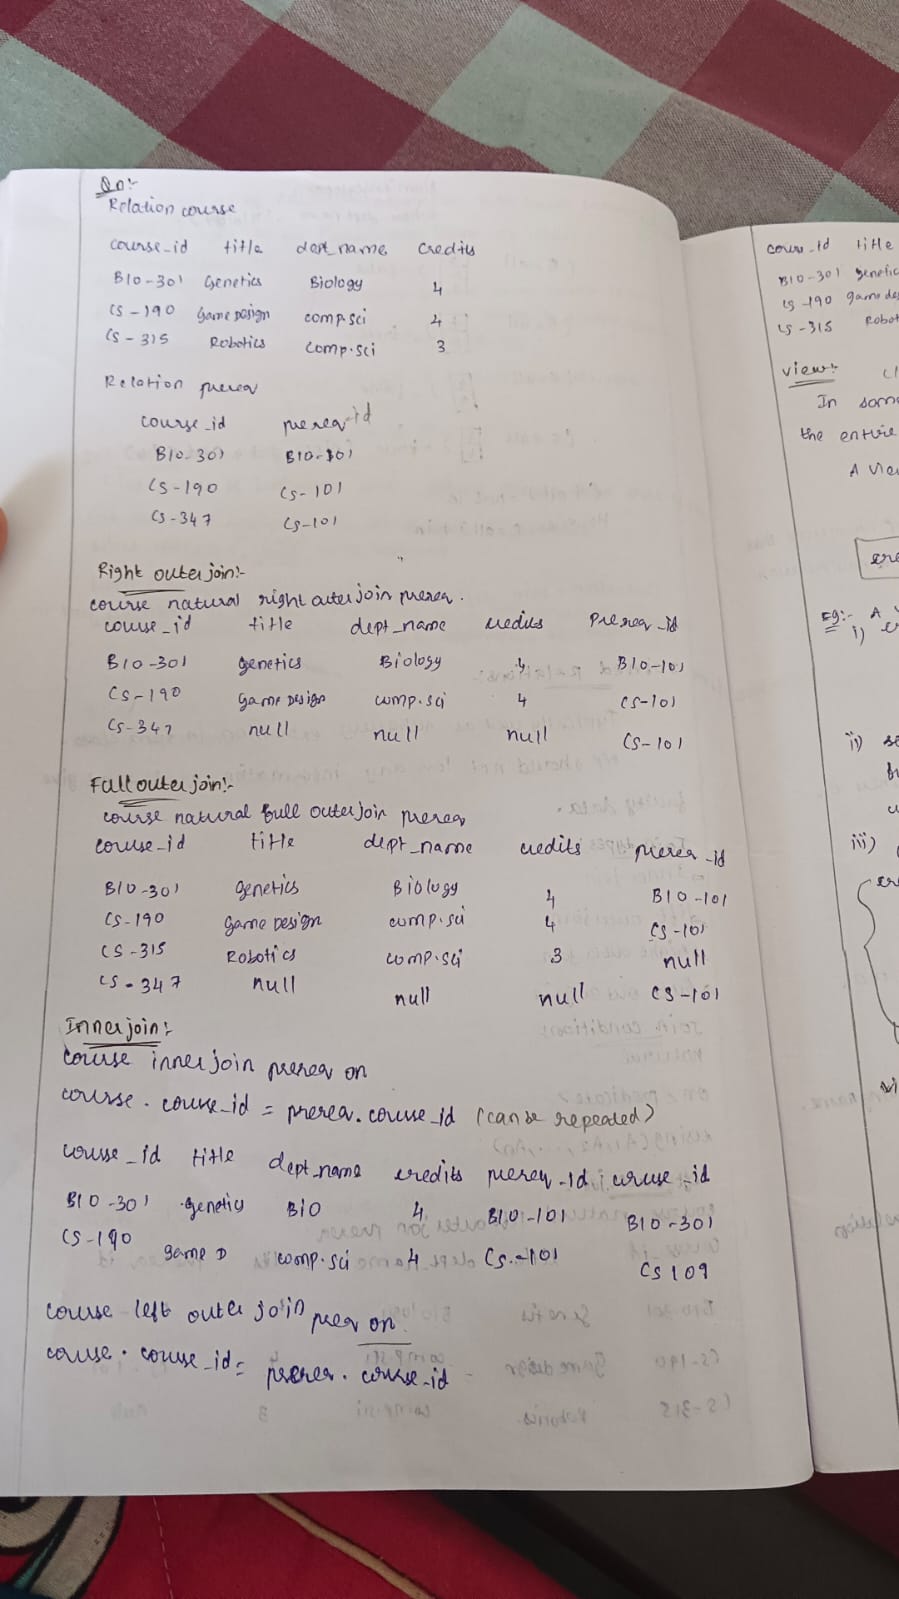 Qn:-
Relation course
course_id title dept_name credits
BIO-301 Genetics Biology 4
CS-190 Game Design comp.sci 4
CS-315 Robotics comp.sci 3
Relation prereq
course_id prereq-id
BIO-301 BIO-101
CS-190 CS-101
CS-347 CS-101
Right outer join:-
course natural right outer join prereq.
course_id title dept_name credits Prereq_id
BIO-301 genetics Biology 4 BIO-101
CS-190 game Design comp.sci 4 CS-101
CS-347 null null null CS-101
Full outer join:-
course natural full outer join prereq
course_id title dept_name credits prereq_id
BIO-301 genetics Biology 4 BIO-101
CS-190 game Design comp.sci 4 CS-101
CS-315 Robotics comp.sci 3 null
CS-347 null null null CS-101
Inner join:-
course inner join prereq on
course.course_id = prereq.course_id (can be repeated)
course_id title dept_name credits prereq_id course_id
BIO-301 genetics BIO 4 BIO-101 BIO-301
CS-190 game D comp.sci 4 CS-101 CS 109
course left outer join prer on
course.course_id = prereq.course_id
course_id title
BIO-301
CS-190 game
CS-315 Robot
view:-
In som
the entire
A vie
cre
Eg:- A
i)
ii) se
iii)